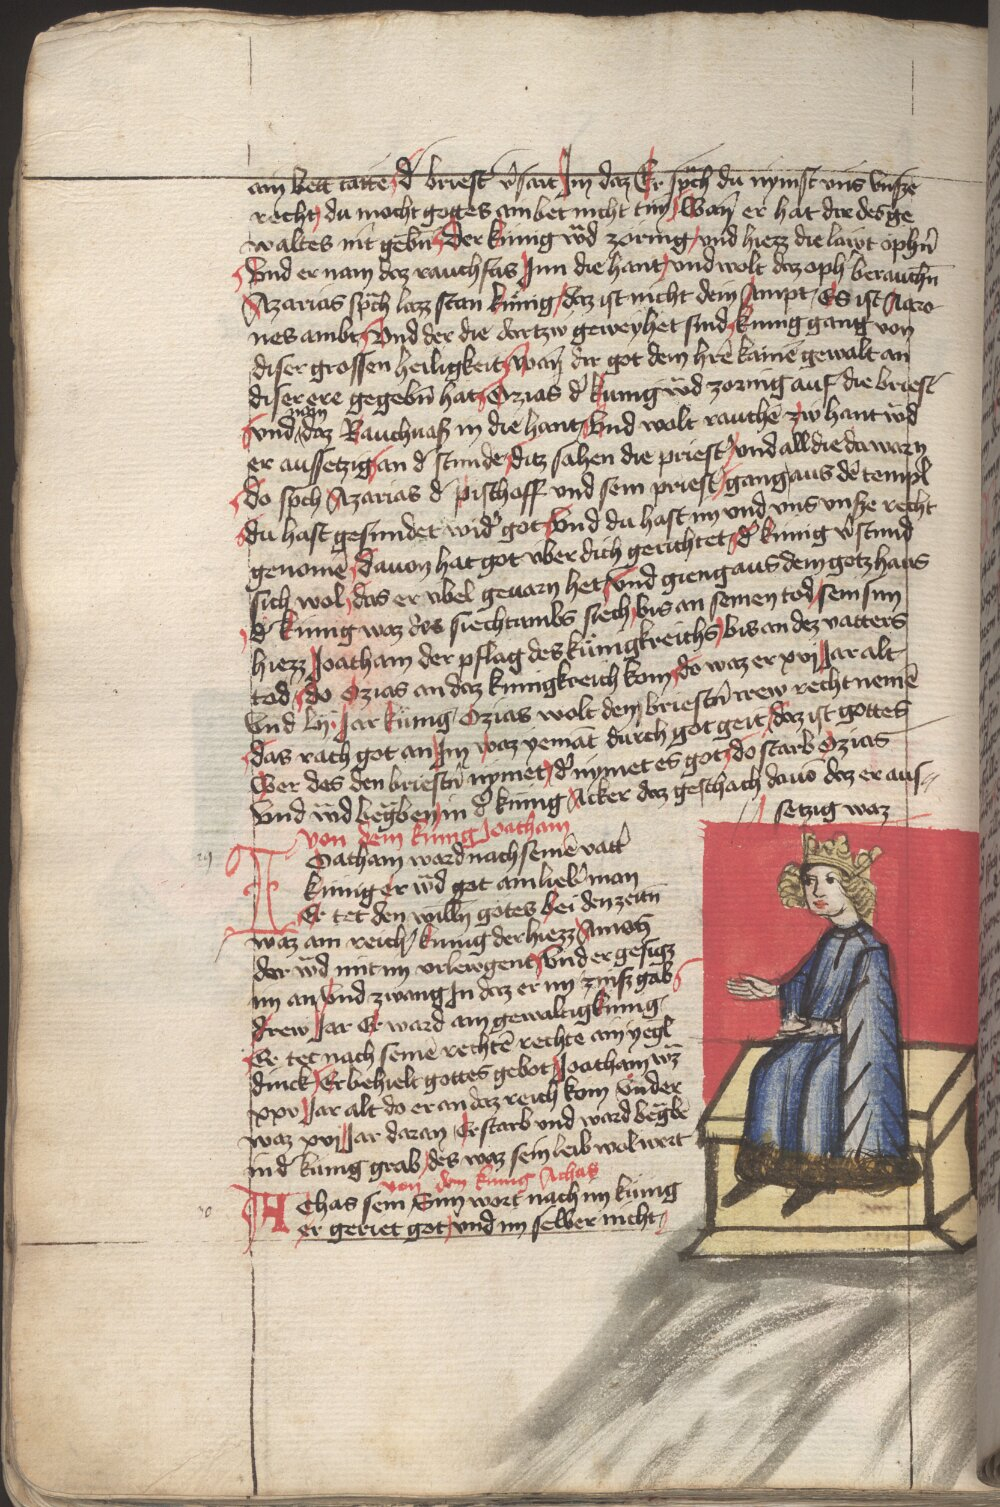 ain bett tatte d' briest v'sait Im daz Er sp͛ch du nymst vns vnse
recht du mocht gottes ambet nicht tun Wan er hat dir des ge
waltes nit gebn̄ Der kunig w͛d zornig vnd hiezz die lawt oph'n
Vnd er nam daz rauchfas Inn die hant vnd wolt daz oph' berauchn̄
Azarias sp͛ch lazz stan kunig daz ist nicht dein Ampt Es ist Aaro
nes ambt Vnd der die dartzw geweyhet sind kunig gang von
diser grossen heiligkeit wan dir got dem hr̄e kainē gewalt an
diser ere gegebn̄ hat Ozias d' kunig w͛d zornig auf die briest'
vnd nam daz Rauchuas in die hant Vnd wolt rauchē zw hant w͛d
er aussetzig an d' stunde ditz sahen die priest' vnd all die da warn
do sp͛ch Azarias d' pischoff vnd sein priest' gang aus dē templ
du hast gesundet wid' got vnd du hast im vnd vns vnse recht
genomē dauon hat got vber dich gerichtet d' kunig v'stund
sich wol das er vbel geuarn het vnd gieng aus dem gotzhaus
d' kunig waz des siechtumbs siech bis an seinen tod sein sun
hiezz Joatham der pflag des kunigkreichs bis an dez vatters
tod do Ozias an daz kunigkreich kom do waz er xvi Jar alt
Vnd lij Jar kunig Ozias wolt dem briest'n irew recht nemē
das rach got an Im waz yemāt durch got geit daz ist gottes
Wer des den briest'n nymet d' nymet es got do starb Ozias
Vnd w͛d begr͛ben in d' kunig Acker daz geschach dauō daz er aus
setzig waz
von dem kunig Joatham
29
Joatham ward nach seinē vatt'
kunig er w͛d got ain lieb' man
Er tet den willn̄ gotes bei den zeitn̄
waz ain reich' kunig der hiezz Amon
der w͛d mit im vrlewgent Vnd er gesigt
im an vnd zwang In daz er im zinß gab
drew Jar Er ward ain gewaltig kunig
Er tet nach seinē rechtē rechte ain yegl
dinck Er behielt gottes gebot Joatham w͛z
xxv Jar alt do er an daz reich kom Vn̄ der
waz xvi Jar daran Er starb vnd ward begr͛bē
in d' kunig grab des waz sein leib wol wert
von dem kunig Achas
30
Achas sein Sun wort nach im kunig
er geriet got vnd im selber nicht